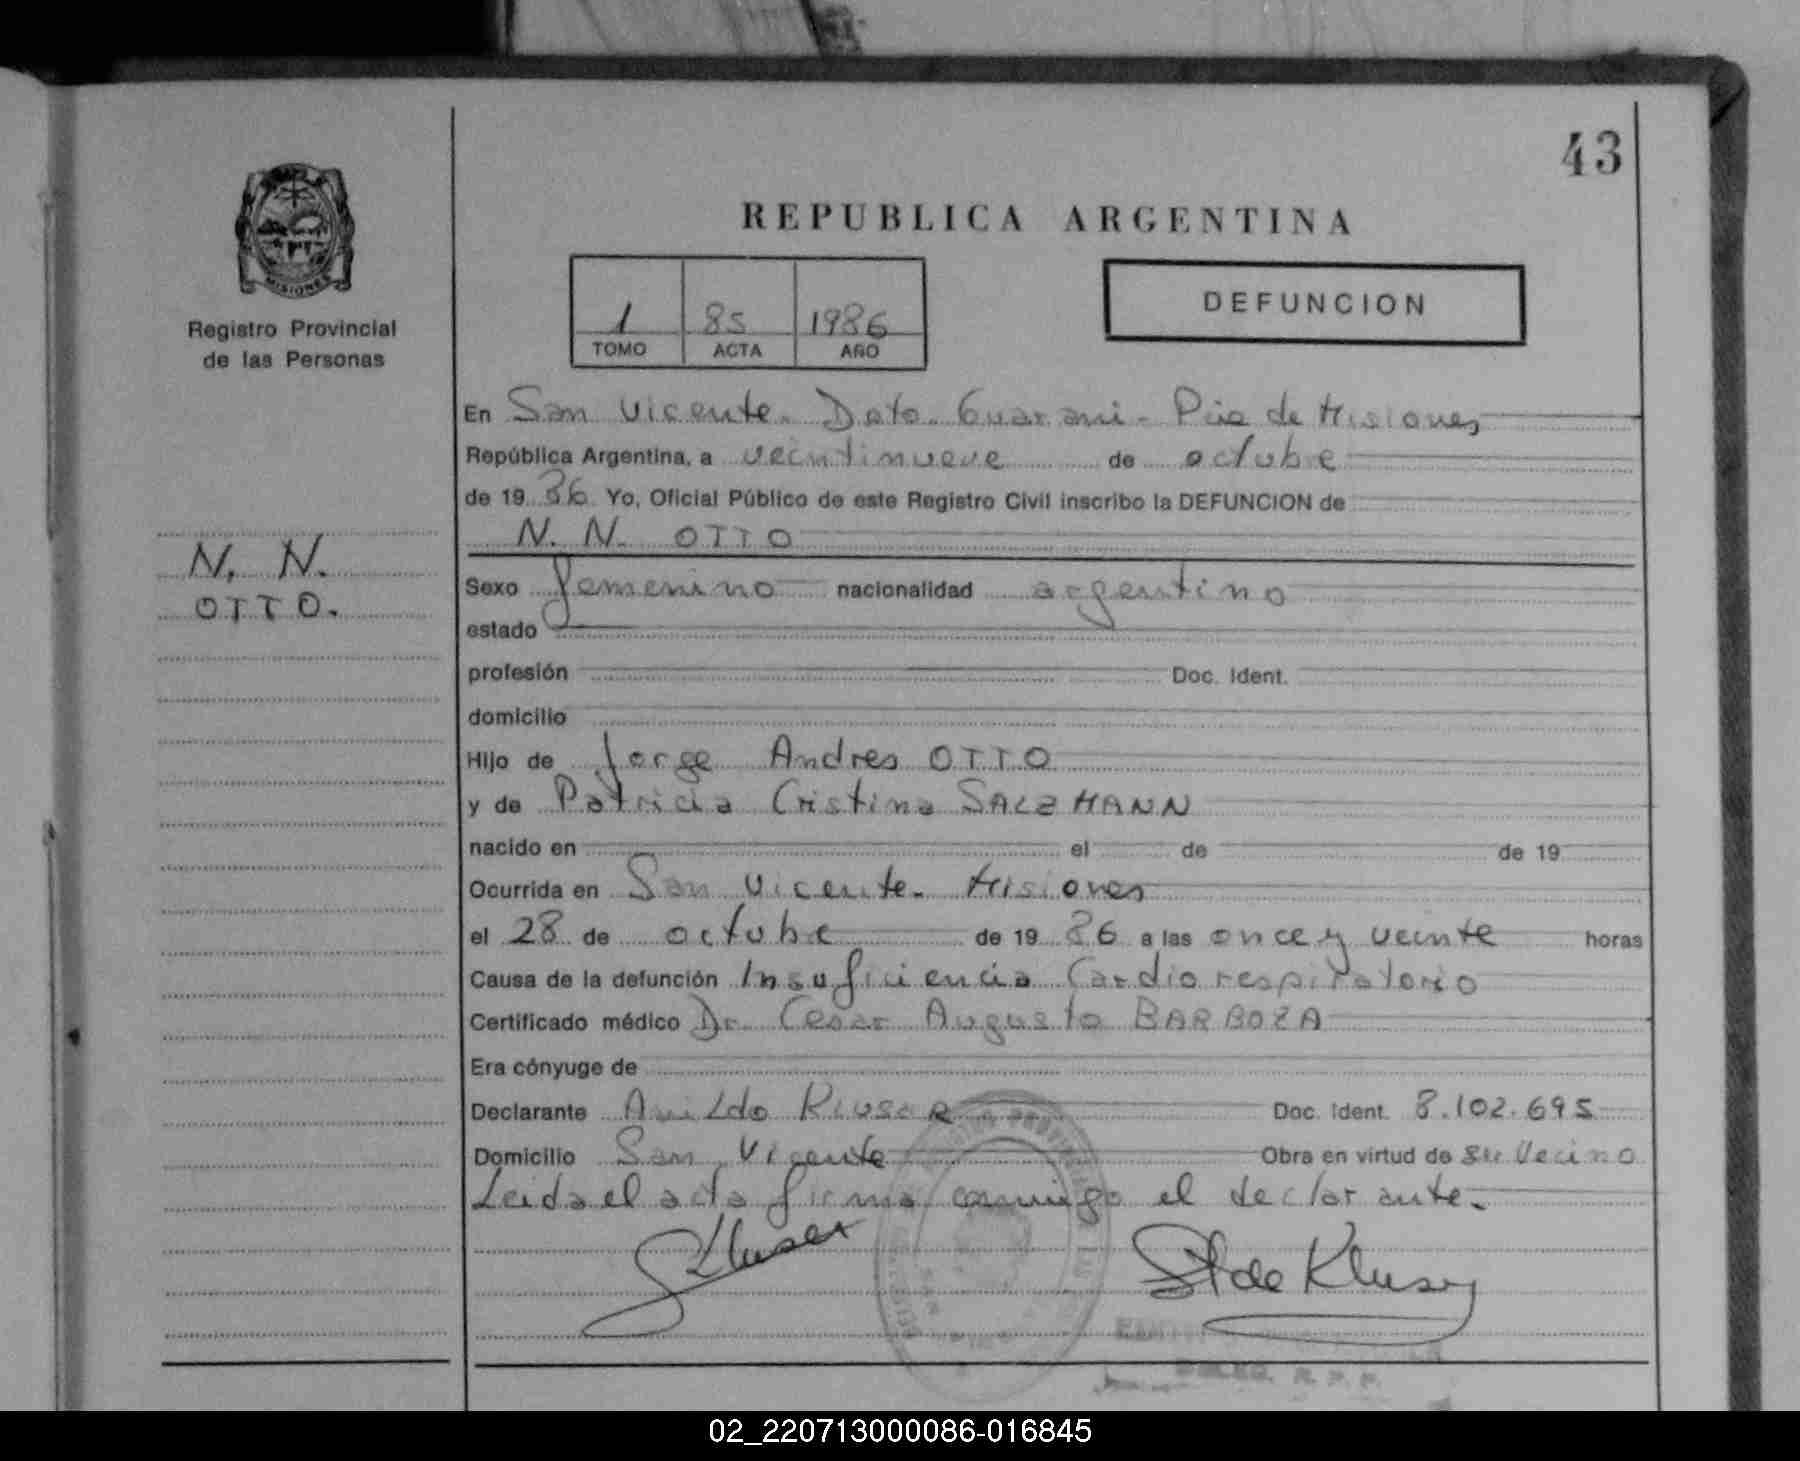 43
REPUBLICA ARGENTINA
MISIONES
Registro Provincial
de las Personas
1 85 1986
TOMO ACTA AÑO
DEFUNCION
En San Vicente. Dpto. Guarani - Pcia de Misiones
República Argentina, a veintinueve de octubre
de 19 86 Yo, Oficial Público de este Registro Civil inscribo la DEFUNCION de
N. N. OTTO
N. N.
OTTO.
Sexo femenino nacionalidad argentino
estado
profesión Doc. Ident.
domicilio
Hijo de Jorge Andres OTTO
y de Patricia Cristina SALZMANN
nacido en el de de 19
Ocurrida en San Vicente. Misiones
el 28 de octubre de 19 86 a las once y veinte horas
Causa de la defunción Insuficiencia Cardiorespiratorio
Certificado médico Dr. Cesar Augusto BARBOZA
Era cónyuge de
Declarante Doc. Ident. 8.102.695
Domicilio San Vicente Obra en virtud de su Vecino
Leida el acta firma conmigo el declarante.
DELEG. R. P. P.
02_220713000086-016845